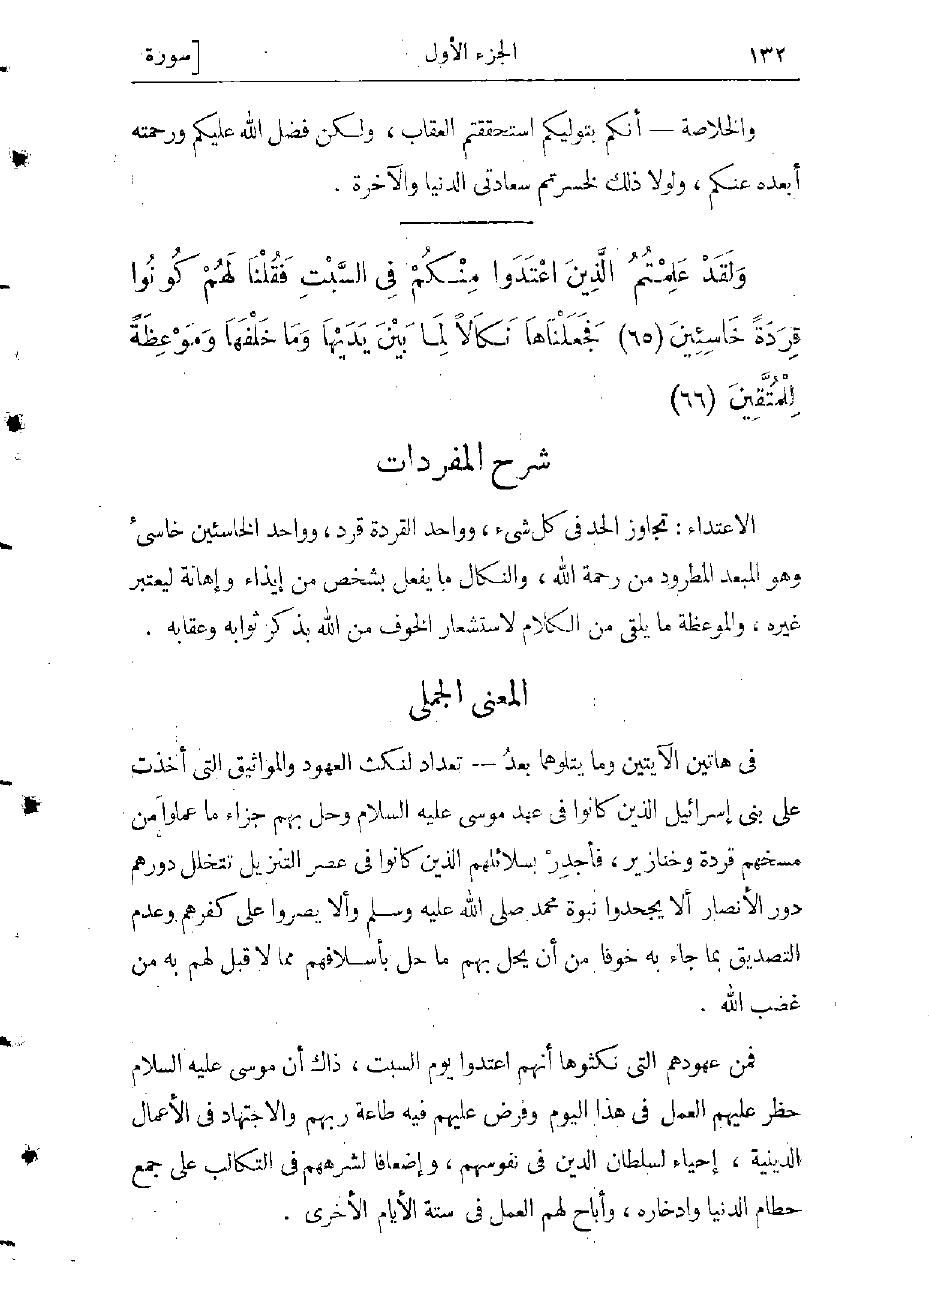 ١٣٢ الجزء الأول [سورة
والخلاصة — أنكم بتوليكم استحققتم العقاب ، ولكن فضل الله عليكم ورحمته
أبعده عنكم ، ولولا ذلك لخسرتم سعادتى الدنيا والآخرة .
وَلَقَدْ عَلِمْتُمُ الَّذِينَ اعْتَدَوا مِنْكُمْ فِى السَّبْتِ فَقُلْنَا لَهُمْ كُونُوا
قِرَدَةً خَاسِئِينَ (٦٥) فَجَعَلْنَاهَا نَكَالاً لِمَا بَيْنَ يَدَيْهَا وَمَا خَلْفَهَا وَمَوْعِظَةً
لِلْمُتَّقِينَ (٦٦)
شرح المفردات
الاعتداء : تجاوز الحد فى كل شىء ، وواحد القردة قرد ، وواحد الخاسئين خاسىء
وهو المبعد المطرود من رحمة الله ، والنكال ما يفعل بشخص من إيذاء وإهانة ليعتبر
غيره ، والموعظة ما يلقى من الكلام لاستشعار الخوف من الله بذكر ثوابه وعقابه .
المعنى الجملى
فى هاتين الآيتين وما يتلوهما بعدُ -- تعداد لنكث العهود والمواثيق التى أخذت
على بنى إسرائيل الذين كانوا فى عهد موسى عليه السلام وحل بهم جزاء ما عملوا من
مسخهم قردة وخنازير ، فأجدِرْ بسلائلهم الذين كانوا فى عصر التنزيل تتخلل دورهم
دور الأنصار ألا يجحدوا نبوة محمد صلى الله عليه وسلم وألا يصروا على كفرهم وعدم
التصديق بما جاء به خوفا من أن يحل بهم ما حل بأسلافهم مما لا قبل لهم به من
غضب الله .
فمن عهودهم التى نكثوها أنهم اعتدوا يوم السبت ، ذاك أن موسى عليه السلام
حظر عليهم العمل فى هذا اليوم وفرض عليهم فيه طاعة ربهم والاجتهاد فى الأعمال
الدينية ، إحياء لسلطان الدين فى نفوسهم ، وإضعافا لشرههم فى التكالب على جمع
حطام الدنيا وادخاره ، وأباح لهم العمل فى ستة الأيام الأخرى .